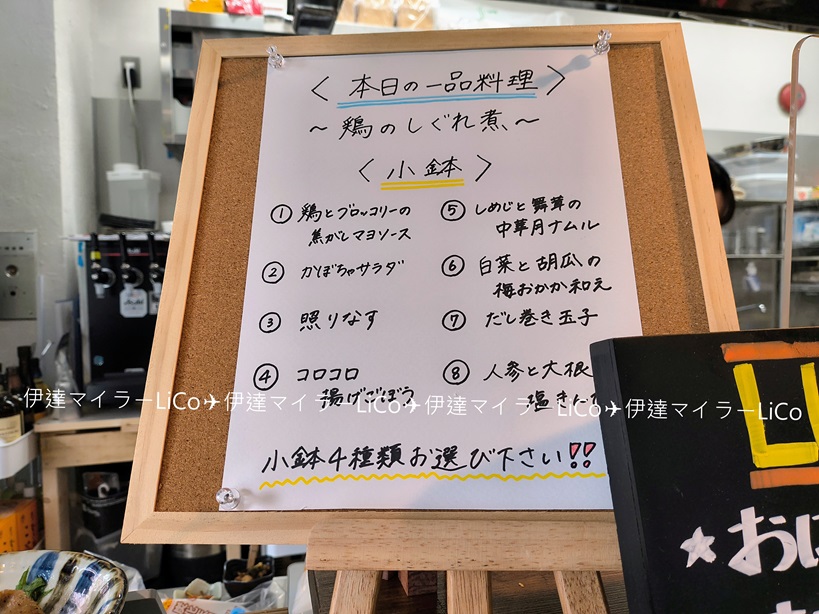 〈本日の一品料理〉
～鶏のしぐれ煮～
〈小鉢〉
①鶏とブロッコリーの
焦がしマヨソース
②かぼちゃサラダ
③照りなす
④コロコロ
揚げごぼう
⑤しめじと舞茸の
中華月ナムル
⑥白菜と胡瓜の
梅おかか和え
⑦だし巻き玉子
⑧人参と大根
塩きん
小鉢4種類お選び下さい!!
伊達マイラーLiCo✈伊達マイラーLiCo✈伊達マイラーLiCo✈伊達マイラーLiCo
★お